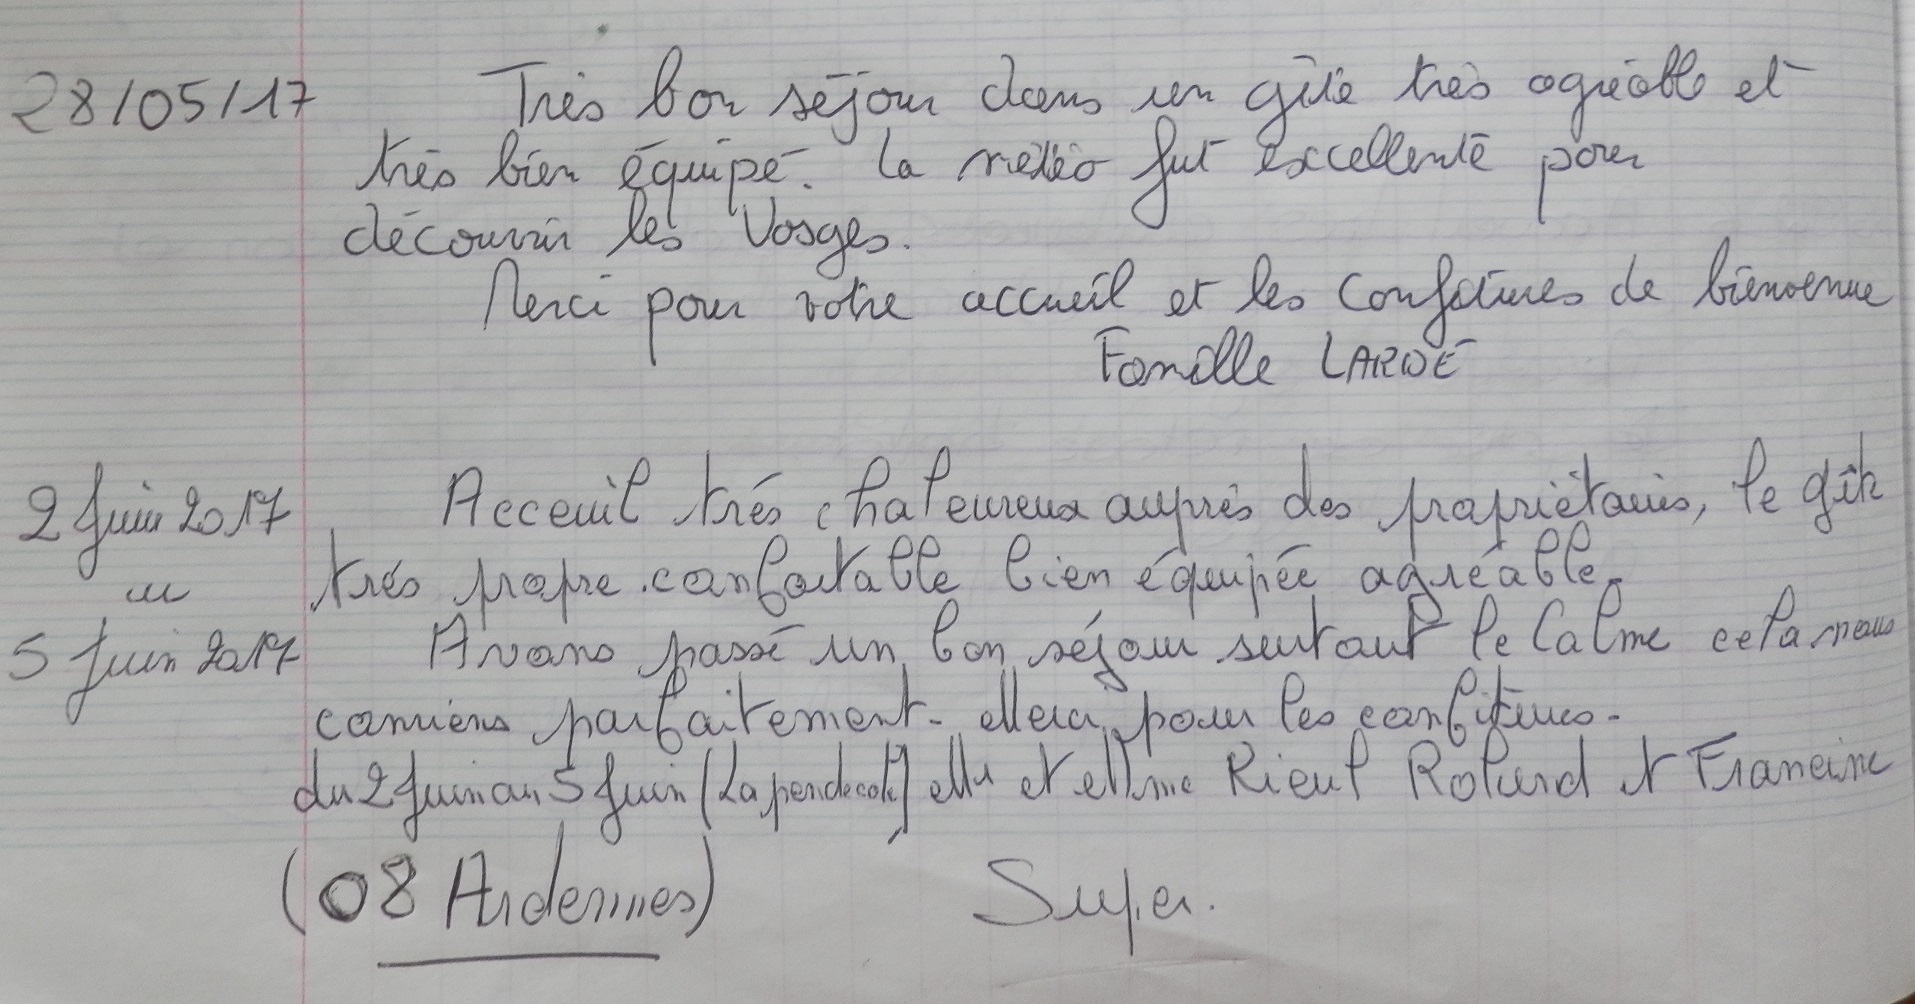 28/05/17 Très bon séjour dans un gîte très agréable et
très bien équipé. La météo fut excellente pour
découvrir les Vosges.
Merci pour votre accueil et les confitures de bienvenue
Famille LARDÉ
2 Juin 2017 Acceuil trés chaleureux auprès des propriétaires, le gîte
au trés propre. confortable bien équipée agréable.
5 Juin 2017 Avons passé un bon séjour surtout le Calme cela nous
conviens parfaitement. Merci pour les confitures.
du 2 Juin au 5 Juin (La pendecote) Mr et Mme Rieul Roland et Francine
(08 Ardennes) Super.